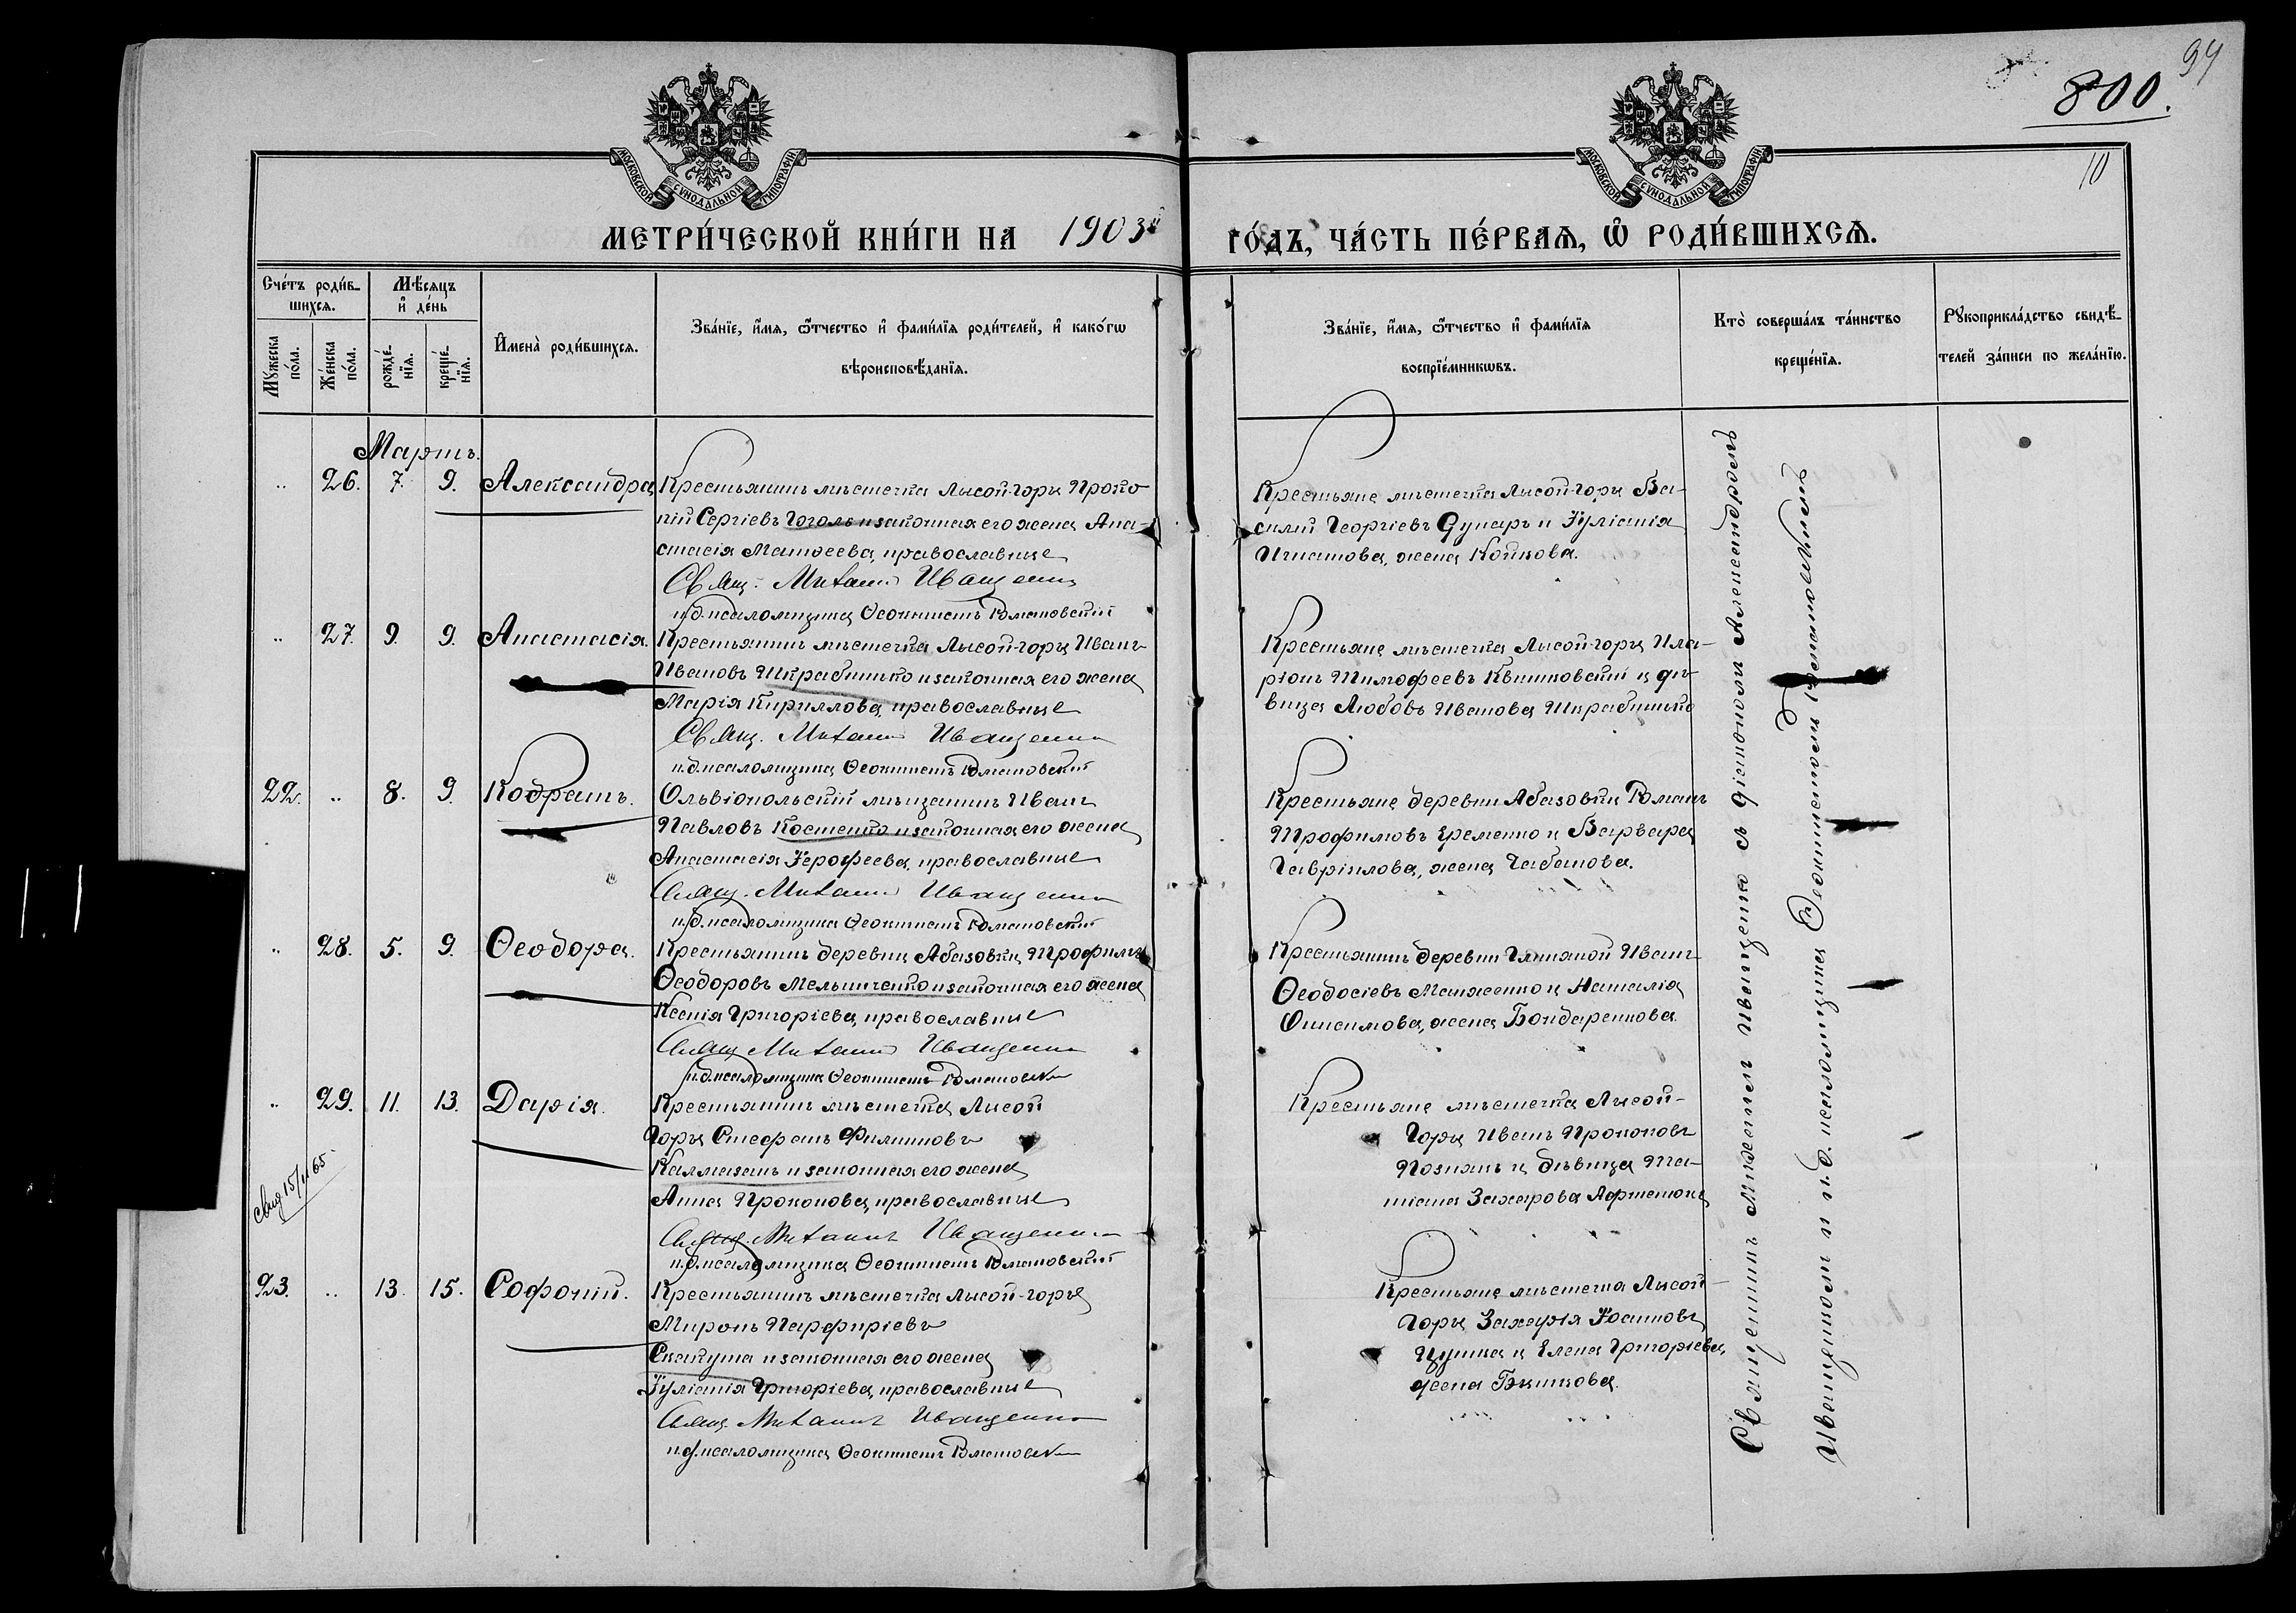 94
800.
10
МОСКОВСКОЙ СѴНОДАЛЬНОЙ ТИПОГРАФІИ
МОСКОВСКОЙ СѴНОДАЛЬНОЙ ТИПОГРАФІИ
МЕТРИ́ЧЕСКОЙ КНИ́ГИ НА 1903й ГО́ДЪ, ЧА́СТЬ ПЕ́РВАѦ, Ѡ҆ РОДИ́ВШИХСѦ.
Сче́тъ роди́в-
шихсѧ.
Мꙋ́жеска по́ла.
Же́нска по́ла.
Мѣ́сѧцъ
и҆ де́нь
рожде́-
нїѧ.
креще́-
нїѧ.
И҆мена̀ роди́вшихсѧ.
Зва́нїе, и҆́мѧ, ѻ҆́тчество и҆ фами́лїѧ роди́телей, и҆ како́гѡ
вѣроисповѣ́данїѧ.
Зва́нїе, и҆́мѧ, ѻ҆́тчество и҆ фами́лїѧ
воспрїе́мникѡвъ.
Кто̀ соверша́лъ та́инство
креще́нїѧ.
Рꙋкоприкла́дство свидѣ́-
телей за́писи по жела́нїю.
Мартъ.
.. 26. 7. 9. Александра
Крестьянинъ мѣстечка Лысой-горы Проко-
пій Сергіевъ Гоголь и законная его жена Ана-
стасія Матѳеева, православные
Свящ. Михаилъ Иващенко
и.д. псаломщика Ѳеоктистъ Романовскій
Крестьяне мѣстечка Лысой-горы Ва-
силій Георгіевъ Дунаръ и Іуліанія
Игнатова, жена Койкова.
.. 27. 9. 9. Анастасія.
Крестьянинъ мѣстечка Лысой-горы Иванъ
Ивановъ Шкрабинько и законная его жена
Марія Кириллова, православные
Свящ. Михаилъ Иващенко
и.д. псаломщика Ѳеоктистъ Романовскій
Крестьяне мѣстечка Лысой-горы Ила-
ріонъ Тимофеевъ Квитковскій и дѣ-
вица Любовь Иванова Шкрабинько
22. .. 8. 9. Кодратъ.
Ольвіопольскій мѣщанинъ Иванъ
Павловъ Костенко и законная его жена
Анастасія Іерофеева, православные
Свящ. Михаилъ Иващенко
и.д. псаломщика Ѳеоктистъ Романовскій
Крестьяне деревни Абазовки Романъ
Трофимовъ Еременко и Варвара
Гавріилова, жена Чабанова.
.. 28. 5. 9. Ѳеодора.
Крестьянинъ деревни Абазовки, Трофимъ
Ѳеодоровъ Мельниченко и законная его жена
Ксенія Григоріева, православные
Свящ. Михаилъ Иващенко
и.д. псаломщика Ѳеоктистъ Романовскій
Крестьянинъ деревни Глиняной Иванъ
Ѳеодосіевъ Манженко и Наталія
Онисимова, жена Бондаренкова.
.. 29. 11. 13. Дарія.
Крестьянинъ мѣстечка Лысой
Горы Стефанъ Филипповъ
Калмазанъ и законная его жена
Анна Прокопова, православные
Свящ. Михаилъ Иващенко
и.д. псаломщика Ѳеоктистъ Романовскій
Крестьяне мѣстечка Лысой-
Горы Иванъ Прокоповъ
Познякъ и дѣвица Та-
тіана Захарова
23. .. 13. 15. Софоній.
Крестьянинъ мѣстечка Лысой-горы
Миронъ Парфиріевъ
и законная его жена
Іуліанія Григоріева, православные
Свящ. Михаилъ Иващенко
и.д. псаломщика Ѳеоктистъ Романовскій
Крестьяне мѣстечка Лысой-
Горы Захарія Іоанновъ
и Елена Григоріева,
жена
Священникъ Михаилъ Иващенко съ діакономъ Александромъ
Иващенкомъ и и.д. псаломщика Ѳеоктистомъ Романовскимъ